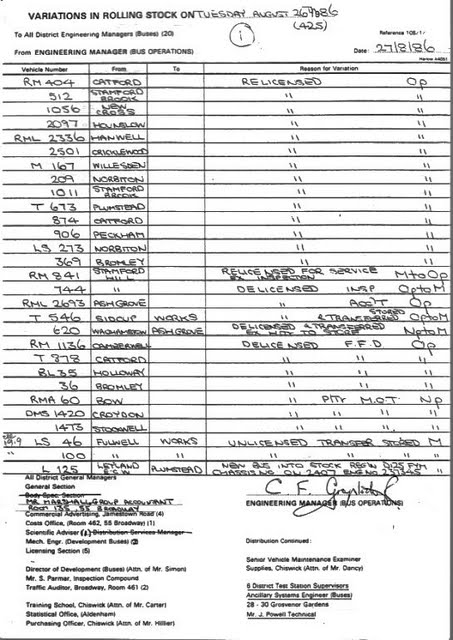 VARIATIONS IN ROLLING STOCK ON TUESDAY AUGUST 26 1986
(425)
To All District Engineering Managers (Buses) (20)
(1)
From ENGINEERING MANAGER (BUS OPERATIONS)
Date 27/8/86
Vehicle Number From To Reason for Variation
RM 404 CATFORD RELICENSED Op
512 STAMFORD BROOK " "
1056 NEW CROSS " "
2097 HOUNSLOW " "
RML 2336 HANWELL " "
2501 CRICKLEWOOD " "
M 167 WILLESDEN " "
209 NORBITON " "
1011 STAMFORD BROOK " "
T 673 PLUMSTEAD " "
874 CATFORD " "
906 PECKHAM " "
LS 273 NORBITON " "
369 BROMLEY " "
RM 341 STAMFORD HILL RELICENSED FOR SERVICE EX INSPECTION M to Op
744 " DELICENSED INSP Op to M
RML 2693 ASH GROVE " ACC'T Op
T 546 SIDCUP WORKS " & TRANSFERRED STORED Op to M
620 WALTHAMSTOW ASH GROVE DELICENSED & TRANSFERRED TO STORE Np to M
RM 1136 CAMBERWELL DELICENSED F.F.D Op
T 878 CATFORD " " "
BL 35 HOLLOWAY " " "
36 BROMLEY " " "
RMA 60 BOW " M.O.T. Np
DMS 1420 CROYDON " " " "
1473 STOCKWELL " " " "
19.9 LS 46 FULWELL WORKS UNLICENSED TRANSFER STORED M
" 100 " " " " " "
L 125 LEYLAND E.C.W PLUMSTEAD NEW BUS INTO STOCK REG'N D125 FYM
CHASSIS NO ON 2407 ENG NO 231345
All District General Managers
General Section
Body Spec. Section
MR MARSHALL, GROUP ACCOUNTANT
ROOM 135, 55 BROADWAY
Commercial Advertising, Jamestown Road (4)
Costs Office, (Room 462, 55 Broadway) (1)
Scientific Adviser (1) Distribution Services Manager
Mech. Engr. (Development Buses) (2)
Licensing Section (5)
Director of Development (Buses) (Attn. of Mr. Simon)
Mr. S. Parmar, Inspection Compound
Traffic Auditor, Broadway, Room 461 (2)
Training School, Chiswick (Attn. of Mr. Carter)
Statistical Office, (Aldenham)
Purchasing Officer, Chiswick (Attn. of Mr. Hillier)
ENGINEERING MANAGER (BUS OPERATIONS)
Distribution Continued:
Senior Vehicle Maintenance Examiner
Supplies, Chiswick (Attn. of Mr. Dancy)
6 District Test Station Supervisors
Ancillary Systems Engineer (Buses)
28 - 30 Grosvenor Gardens
Mr. J. Powell Technical